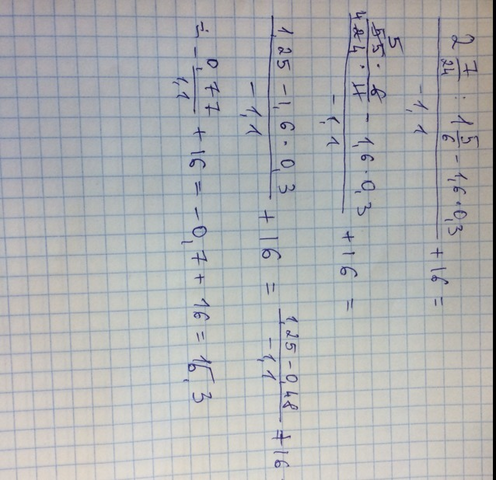 2 7/24 : 1 5/6 - 1,6 · 0,3
-1,1
+ 16 =
5
55 · 6
4 24 · 11 - 1,6 · 0,3
-1,1
+ 16 =
1,25 - 1,6 · 0,3
-1,1
+ 16 =
1,25 - 0,48
-1,1
+ 16
= - 0,77
1,1
+ 16 = - 0,7 + 16 = 15,3